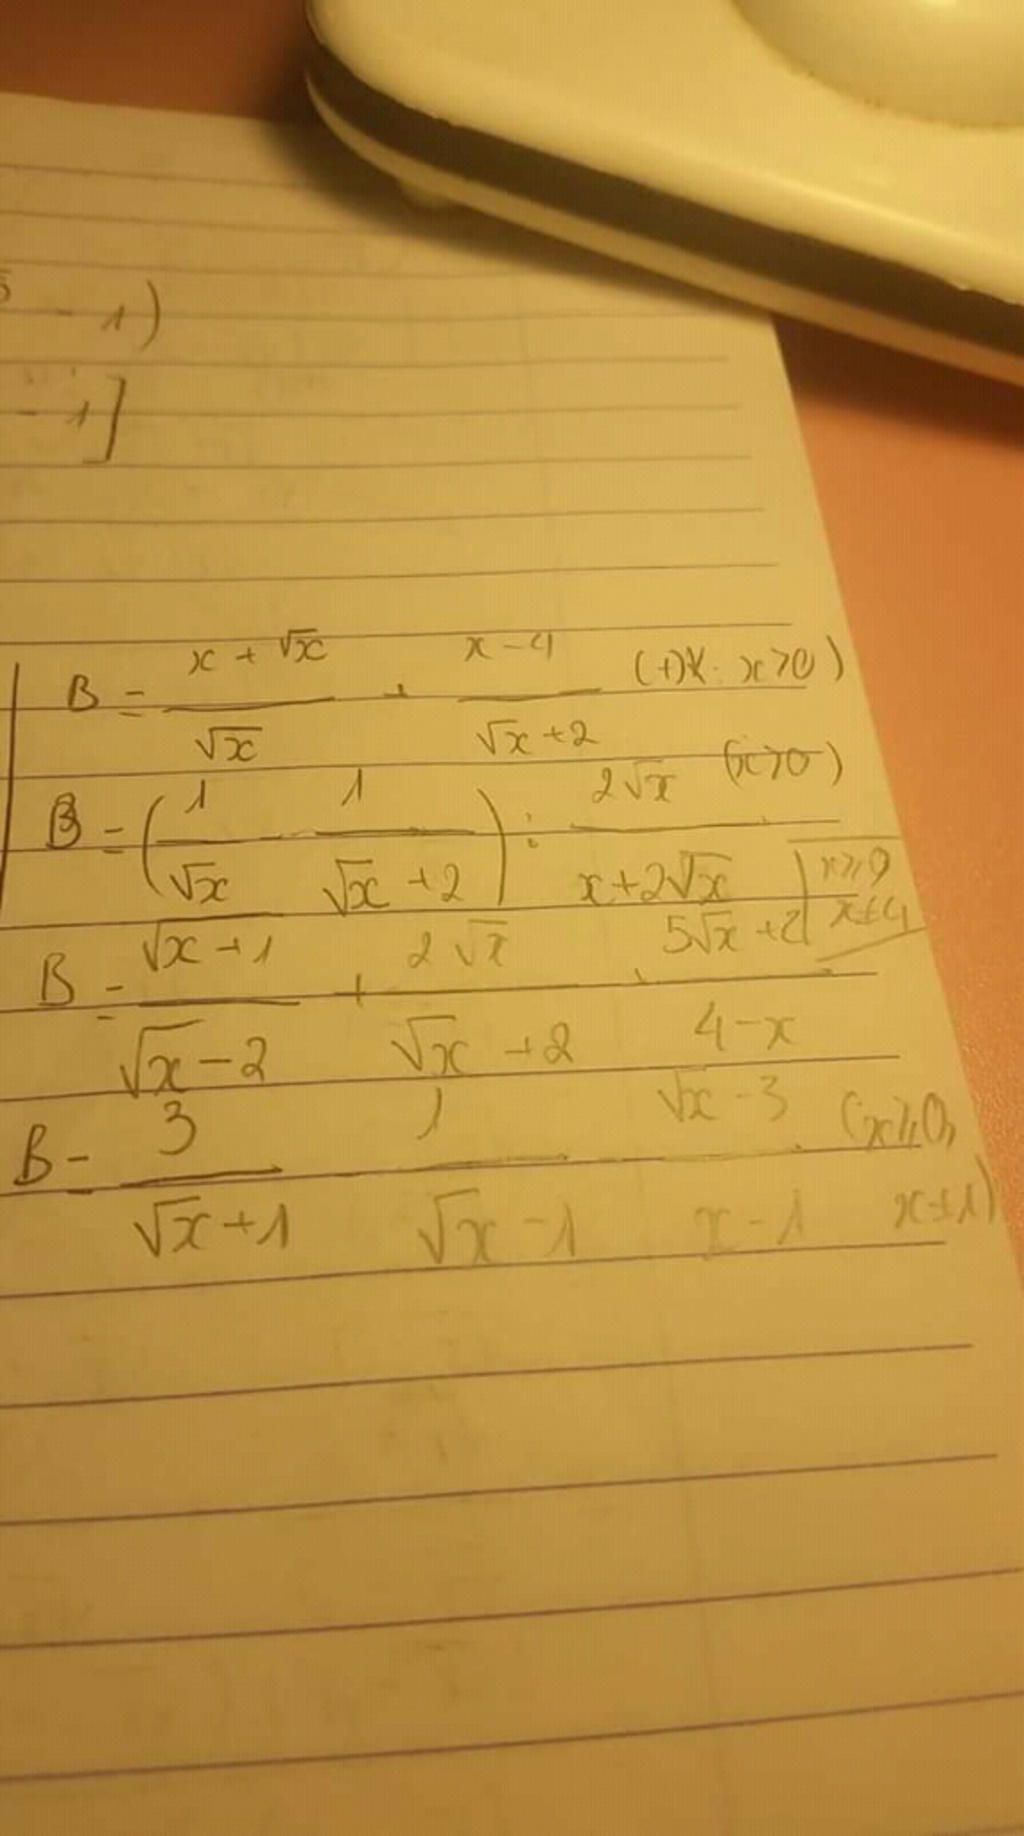 - 1)
- 1]
B = (x + √x)/√x + (x - 4)/(√x + 2) x > 0)
B = (1/√x - 1/(√x + 2)) : 2√x/(x + 2√x) (x > 0)
B = (√x + 1)/(√x - 2) + 2√x/(√x + 2) (5√x + 2)/(4 - x) x ≥ 0 x ≠ 4
B = 3/(√x + 1) - 1/(√x - 1) - (√x - 3)/(x - 1) (x ≥ 0, x ≠ 1)